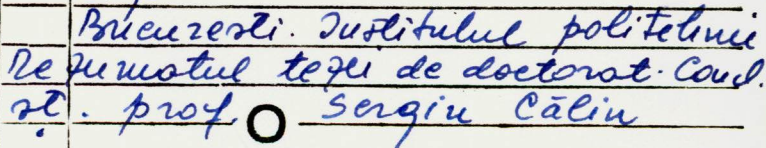 București. Institutul politehnic
Rezumatul tezei de doctorat. Cond.
șt. prof. Sergiu Călin